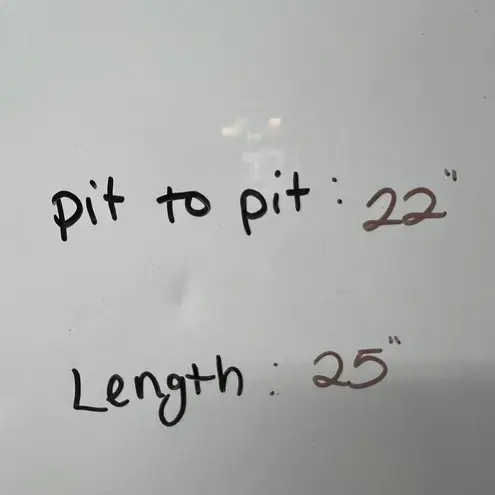 pit to pit : 22"
Length : 25"